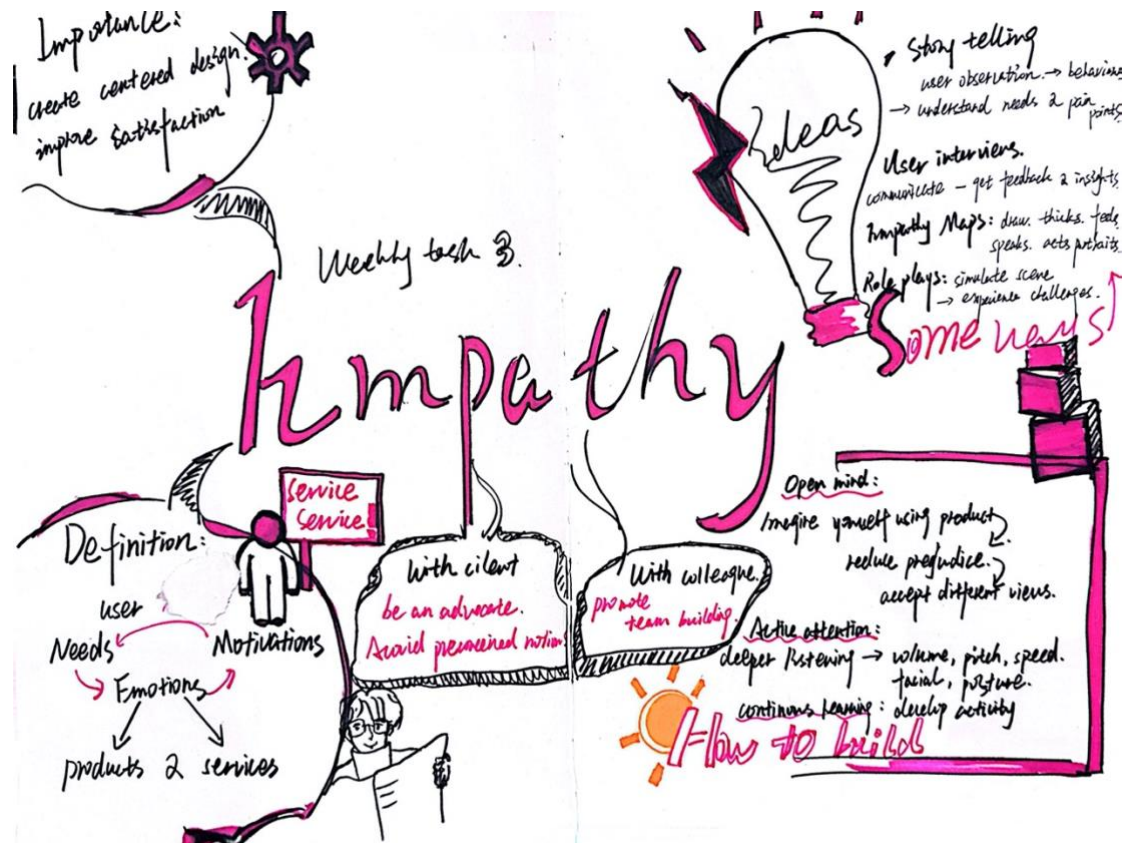 Importance:
create centered design.
improve satisfaction
Weekly task 3.
Empathy
Ideas
Story telling
user observation. → behaviors
→ understand needs & pain
points.
User interviews.
communicate - get feedback & insights.
Empathy Maps: draw. thicks. feels
speaks. acts portraits
Role plays: simulate scene
→ experience challenges.
Some ways
Definition:
user
Needs
Motivations
Emotions
products & services
service
service
With cilent
be an advocate.
Avoid preconceined notions
With colleague.
promote
team building.
Open mind:
Imagine yourself using product
reduce prejudice.
accept different views.
Active attention:
deeper listening → volume, pitch, speed.
facial, posture.
continous learning: develop activity
How to build